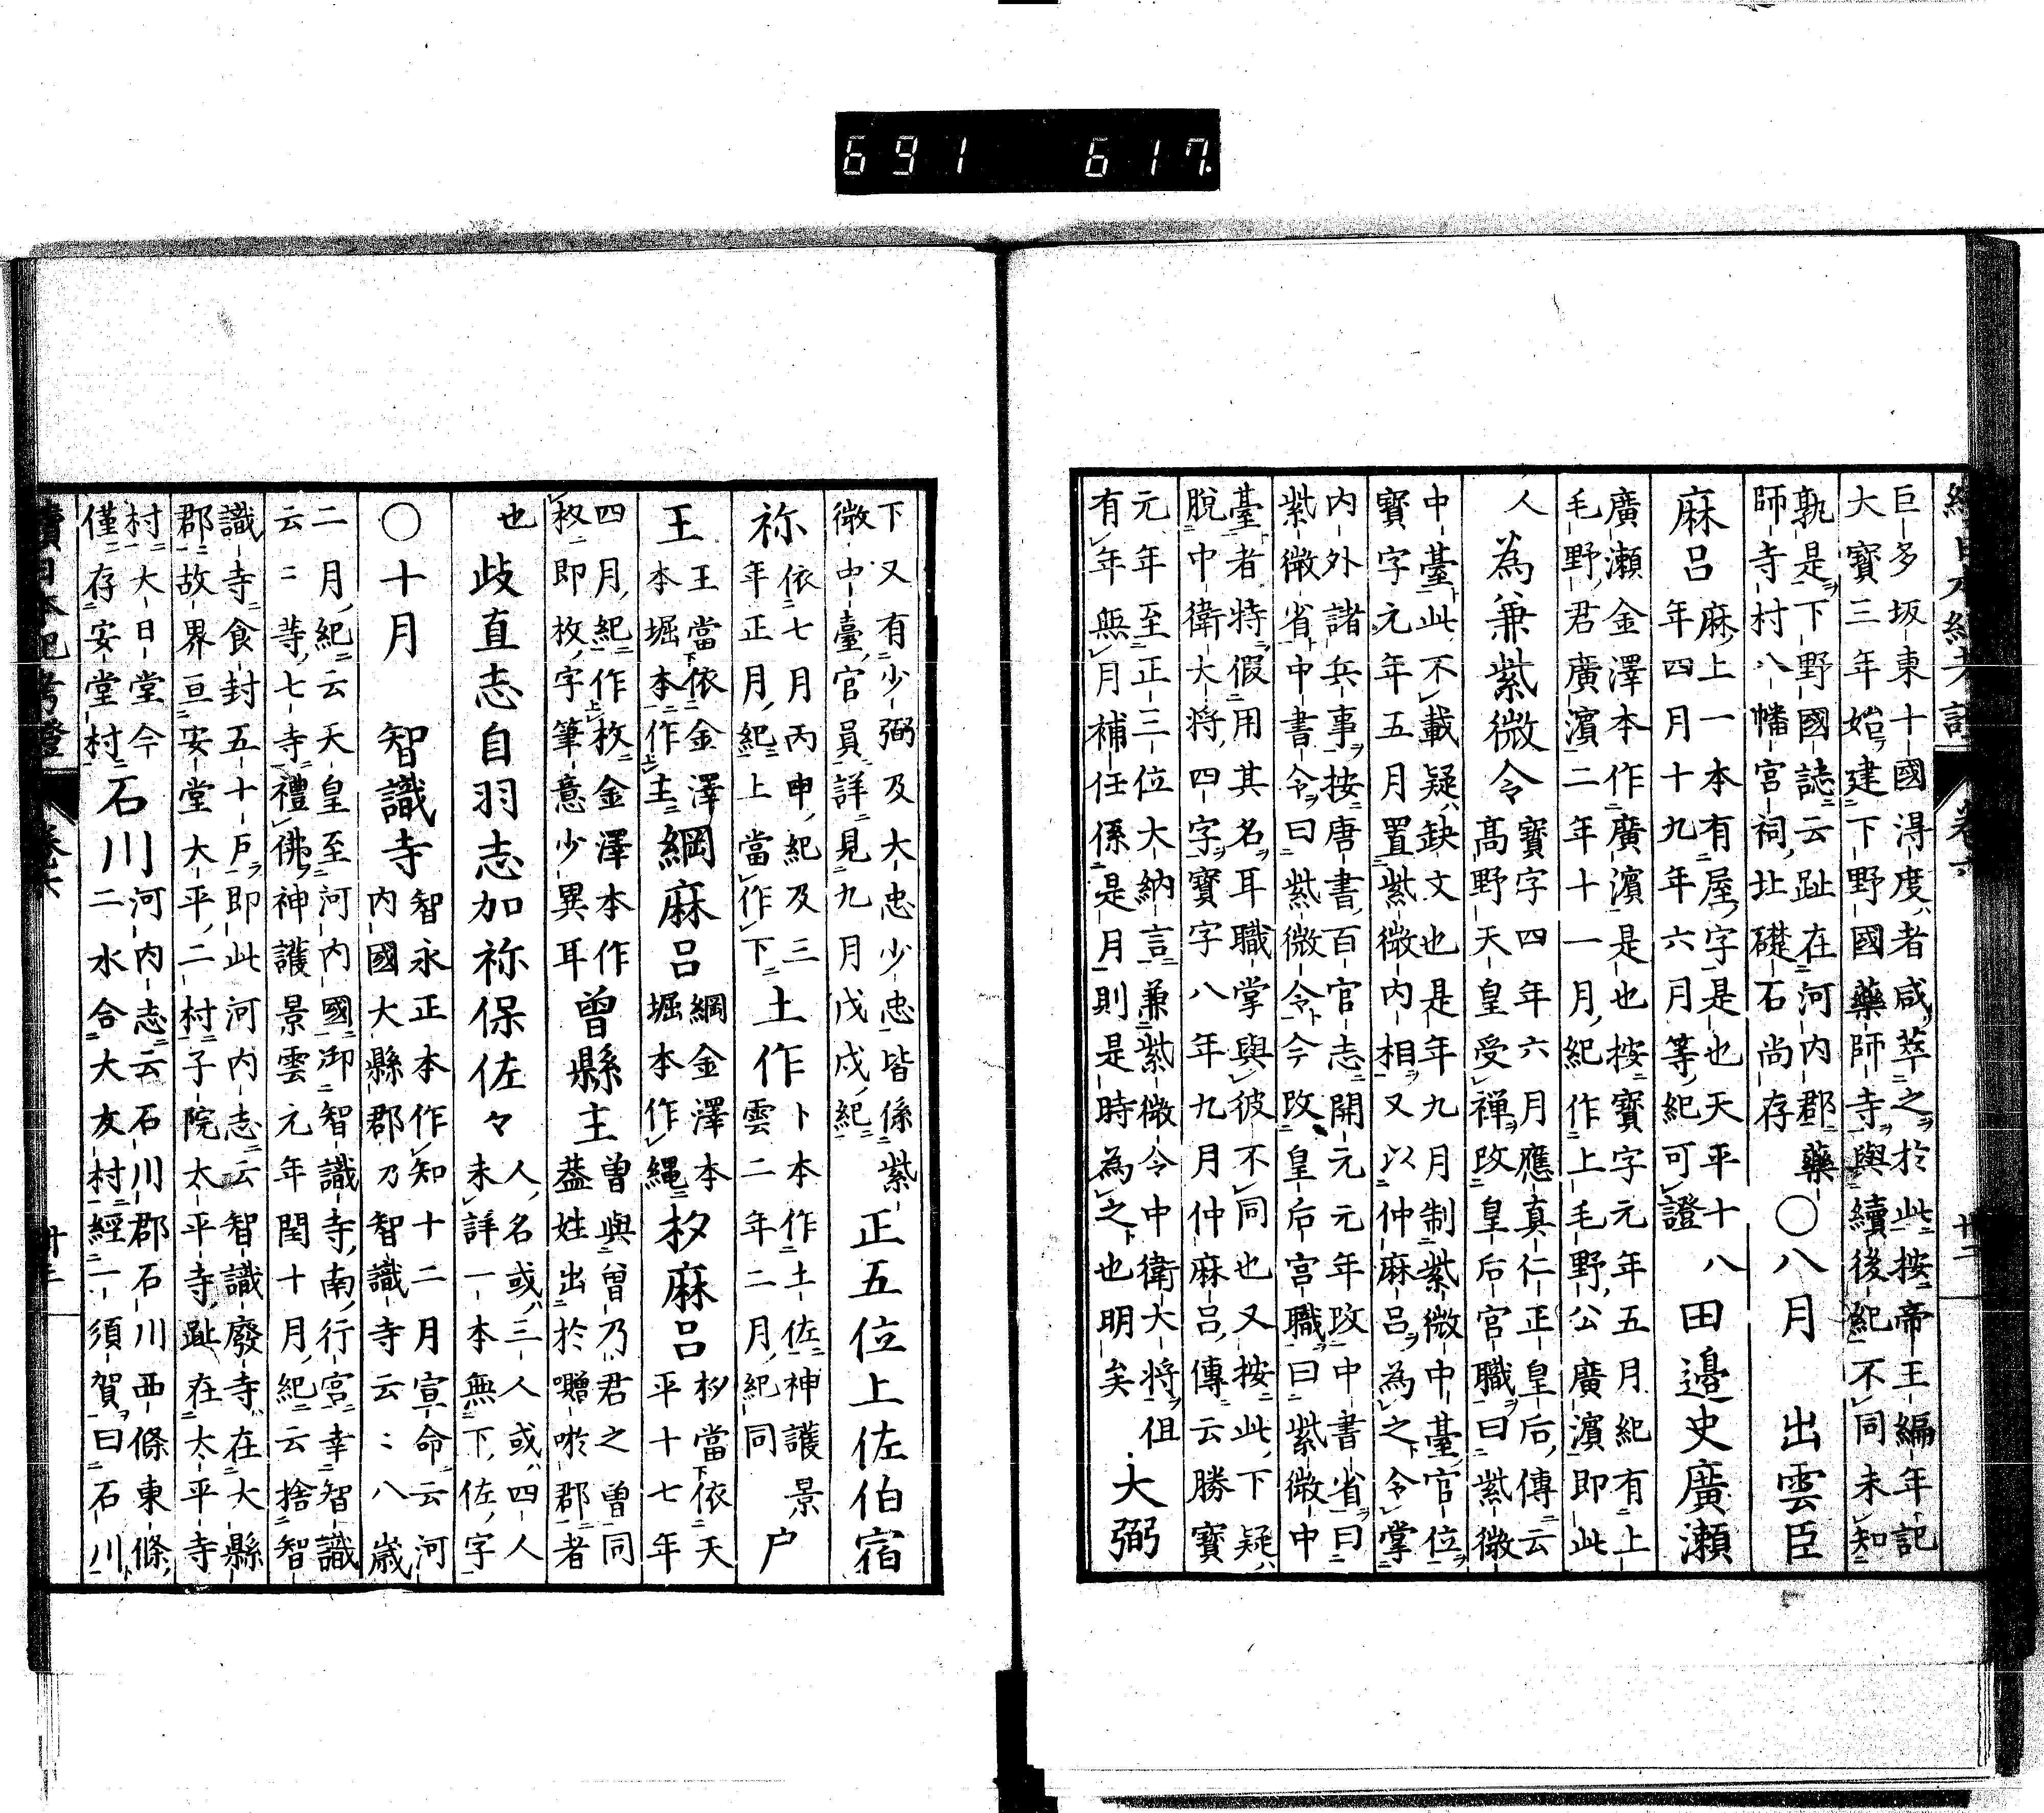 691 617
巨多坂東十國得度者咸萃之於此按帝王編年記
大寶三年始建下野國藥師寺與續後紀不同未知
孰是下野國誌云趾在河内郡藥
師寺村八幡宮祠址礎石尚存
○八月 出雲臣
麻呂
麻上一本有屋字是也天平十八
年四月十九年六月等紀可證
田邉史廣瀬
廣瀬金澤本作廣濱是也按寶字元年五月紀有上
毛野君廣濱二年十一月紀作上毛野公廣濱即此
人
為兼紫微令
寶字四年六月應真仁正皇后傳云
高野天皇受禅改皇后宮職曰紫微
中臺此不載疑缺文也是年九月制紫微中臺官位
寶字元年五月置紫微内相又以仲麻呂為之令掌
内外諸兵事按唐書百官志開元元年改中書省曰
紫微省中書令曰紫微令今改皇后宮職曰紫微中
臺者特假用其名耳職掌與彼不同也又按此下疑
脫中衛大将四字寶字八年九月仲麻呂傳云勝寶
元年至正三位大納言兼紫微令中衛大将但
有年無月補任係是月則是時為之也明矣
大弼
下又有少弼及大忠少忠皆係紫
微中臺官員詳見九月戊戌紀
正五位上佐伯宿
祢
依七月丙申紀及三
年正月紀上當作下
土作
卜本作土佐神護景
雲二年二月紀同
户
王
王當依金澤
本堀本作主
綱麻呂
綱金澤本
堀本作繩
枚麻呂
枚當依天
平十七年
四月紀作枚金澤本作
枚即枚字筆意少異耳
曾縣主
曽與曾乃君之曽同
葢姓出於囎唹郡者
也
歧直志自羽志加祢保佐々
人名或三人或四人
未詳一本無下佐字
○十月 智識寺
智永正本作知十二月宣命云河
内國大縣郡乃智識寺云〻八歳
二月紀云天皇至河内國御智識寺南行宮幸智識
云〻等七寺禮佛神護景雲元年閏十月紀云捨智
識寺食封五十戸即此河内志云智識廢寺在大縣
郡故界亘安堂大平二村子院太平寺趾在太平寺
村大日堂今
僅存安堂村
石川
河内志云石川郡石川西條東條
二水合大友村經一須賀曰石川
續日本紀考證 卷六